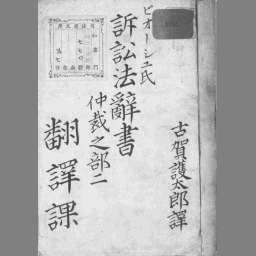 ビオーシュ氏
訴訟法辭書
仲裁之部二
古賀護太郎譯
翻譯課